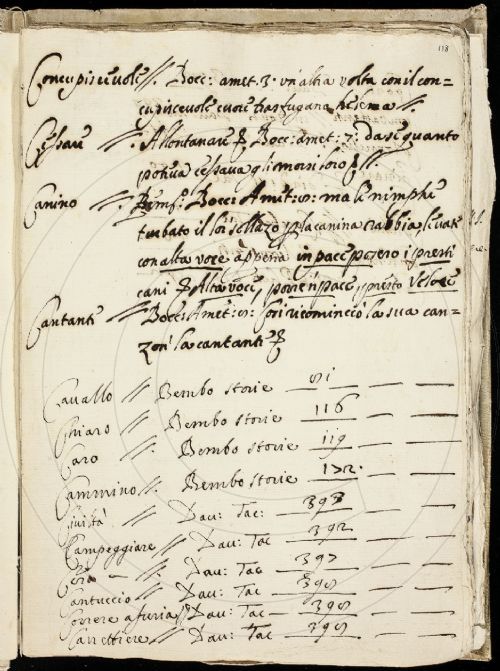 118
Concupiscevole //. Bocc: amet. 3. un'altra volta con il con=
cupiscevole cuore trasfugava Helena //.
Cessau //. Allontanare & Bocc: amet: 7: da se quanto
poteua cessaua gli morsi loro
Canino //. Bocc: Amet: ma le nimphe
turbato il lor sollazo la canina rabbia
con alta voce appena in pace posero i presti
cani & Alta voce, porre in pace, presto Veloce
Cantanti // Bocc: Amet: lori ricominciò la sua can=
zon' la cantanti &
Cavallo // Bembo storie 81
Chiaro // Bembo storie 116
Caro // Bembo storie 119
Cammino //. Bembo storie
Civiltà // Dav: Tac: 393
Campeggiare // Dav: Tac 392
Dav: Tac 397
Cantuccio // Dav: Tac 398
Correre a furia // Dav: Tac 398
Carrettiere // Dav: Tac 398